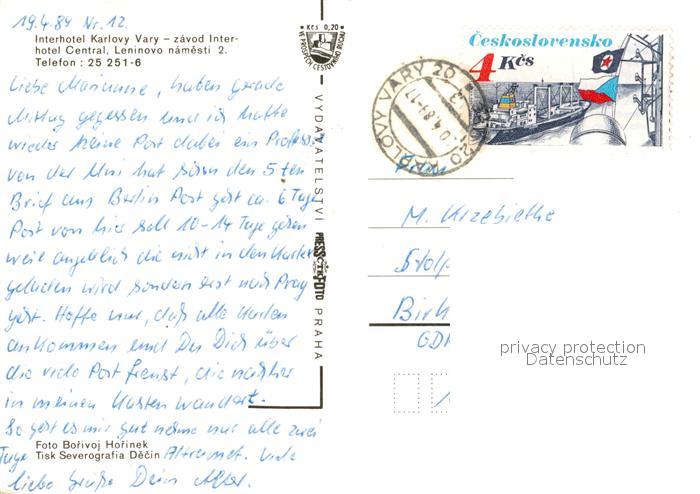 19.4.89 Nr. 12.
Interhotel Karlovy Vary – závod Inter-
hotel Central, Leninovo náměstí 2.
Telefon : 25 251-6
Liebe Marianne, haben gerade
Mittag gegessen und ich hatte
wieder keine Post dabei ein Professor
von der Uni hat schon den 5 ten
Brief aus Berlin Post geht ca. 6 Tage
Post von hier soll 10-14 Tage gehen
weil angeblich die nicht in den Kasten
geladen wird sondern erst nach Prag
geht. Hoffe nur, daß alle Karten
ankommen und Du Dich über
die viele Post freust, die nachher
in meinen Kasten wandert.
So geht es mir gut nehme nur alle zwei
Tage
Foto Bořivoj Hořínek
Tisk Severografia Děčín
Viele
liebe Grüße Dein
Kčs 0,20
VE PROSPĚCH CESTOVNÍHO RUCHU
VYDAVATELSTVÍ PRESSFOTO PRAHA
ČTK
Československo
4 Kčs
KARLOVY VARY 20
M. Krzebietke
Stolp
Birk
GDR
privacy protection
Datenschutz